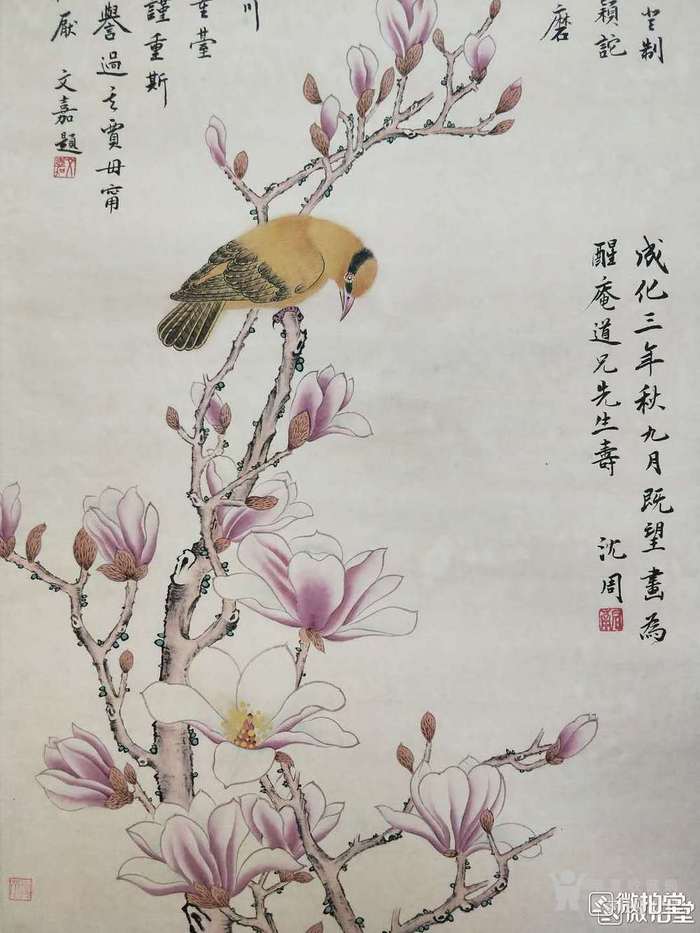 制
穎詑
磨
成化三年秋九月既望畫為
醒庵道兄先生壽
沈周
川
重臺
謹重斯
譽過之賈毋甯
厭
文嘉題
微拍堂